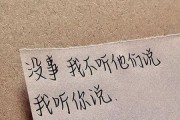 没事 我不听他们说
我听你说.